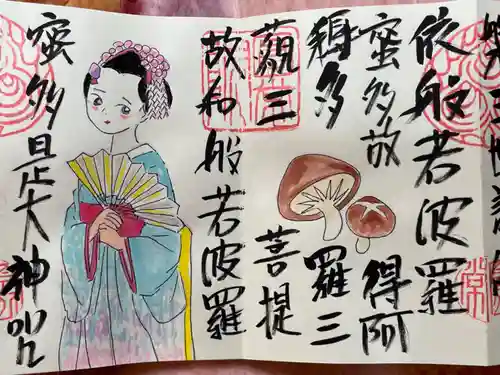 依般若波羅
蜜多故得阿
耨多羅三
藐三菩提
故知般若波羅
蜜多是大神呪